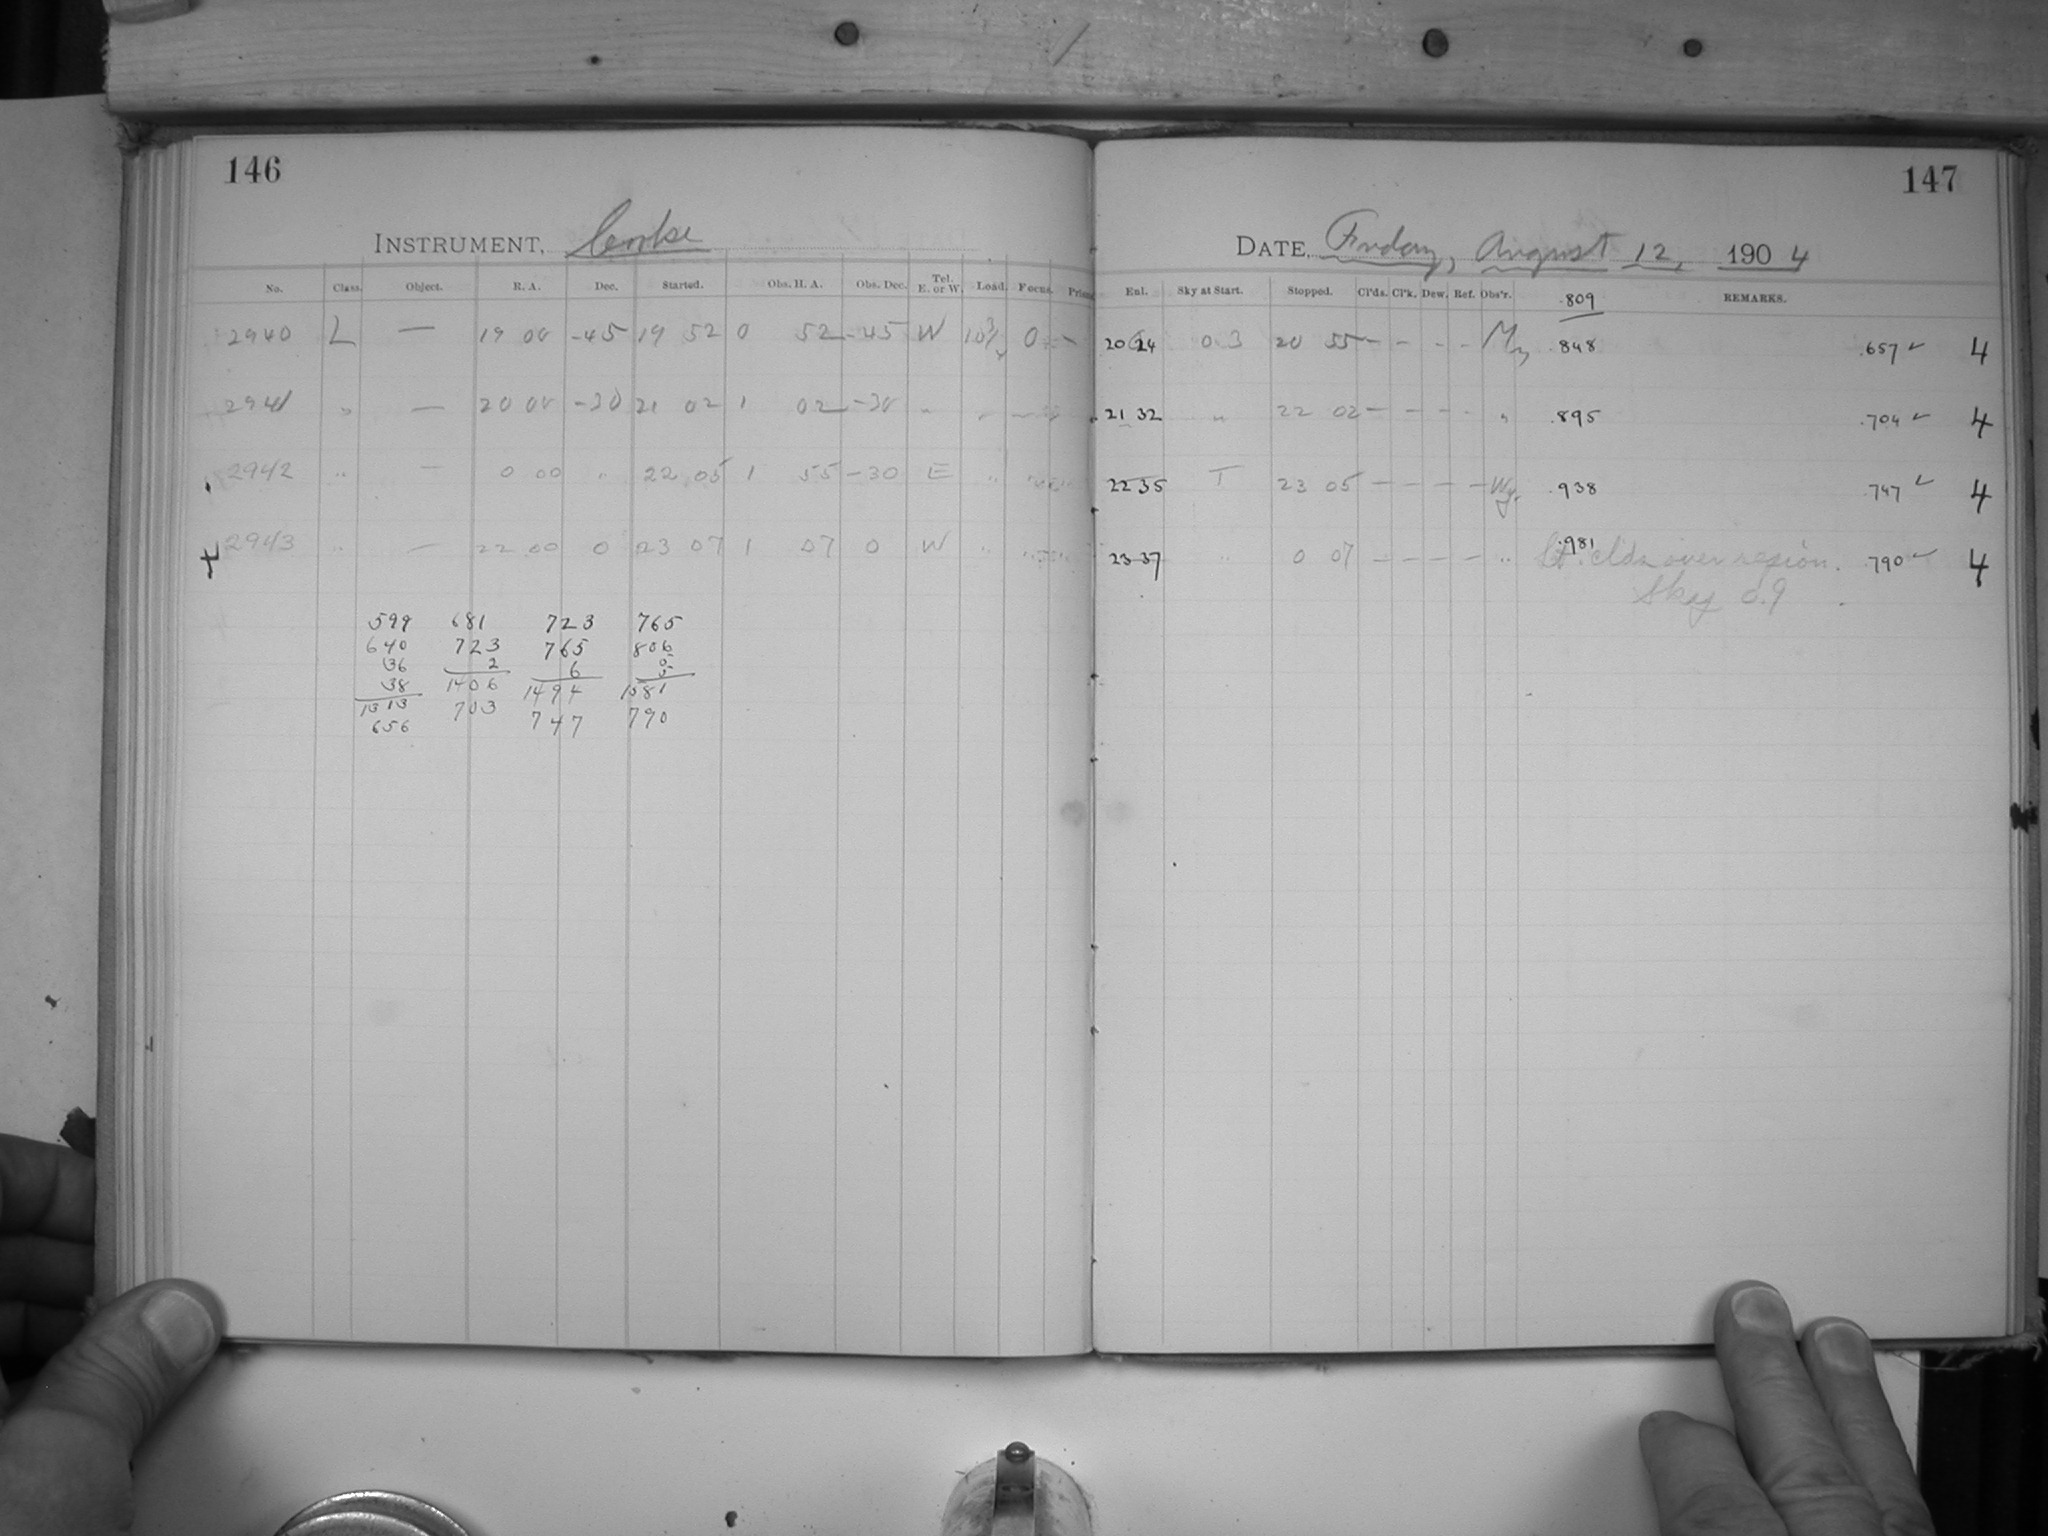 146
INSTRUMENT, Cooke
No. Class. Object. R. A. Dec. Started. Obs. H. A. Obs. Dec. Tel. E. or W. Load. Focus.
2940 L — 19 00 -45 19 52 0 52 -45 W 10 3/4 0 -
2941 " — 20 00 -30 21 02 1 02 -30 " "
2942 " — 0 00 " 22 05 1 55 -30 E "
+ 2943 " — 22 00 0 23 07 1 07 0 W "
599 681 723 765
640 723 765 806
36 2 6 5
38 1406 1494 1581
1313 703 747 790
656
147
DATE, Friday, August 12, 1904
Enl. Sky at Start. Stopped. Cl'ds. Cl'k. Dew. Ref. Obs'r. .809 REMARKS.
20 24 0.3 20 55 - - - - .848 .657 ✓ 4
21 32 " 22 02 - - - - " .895 .704 ✓ 4
22 35 T 23 05 - - - - Wy. .938 .747 ✓ 4
23 37 " 0 07 - - - - " .981
Lt. clds over region. .790 ✓ 4
Sky 0.9